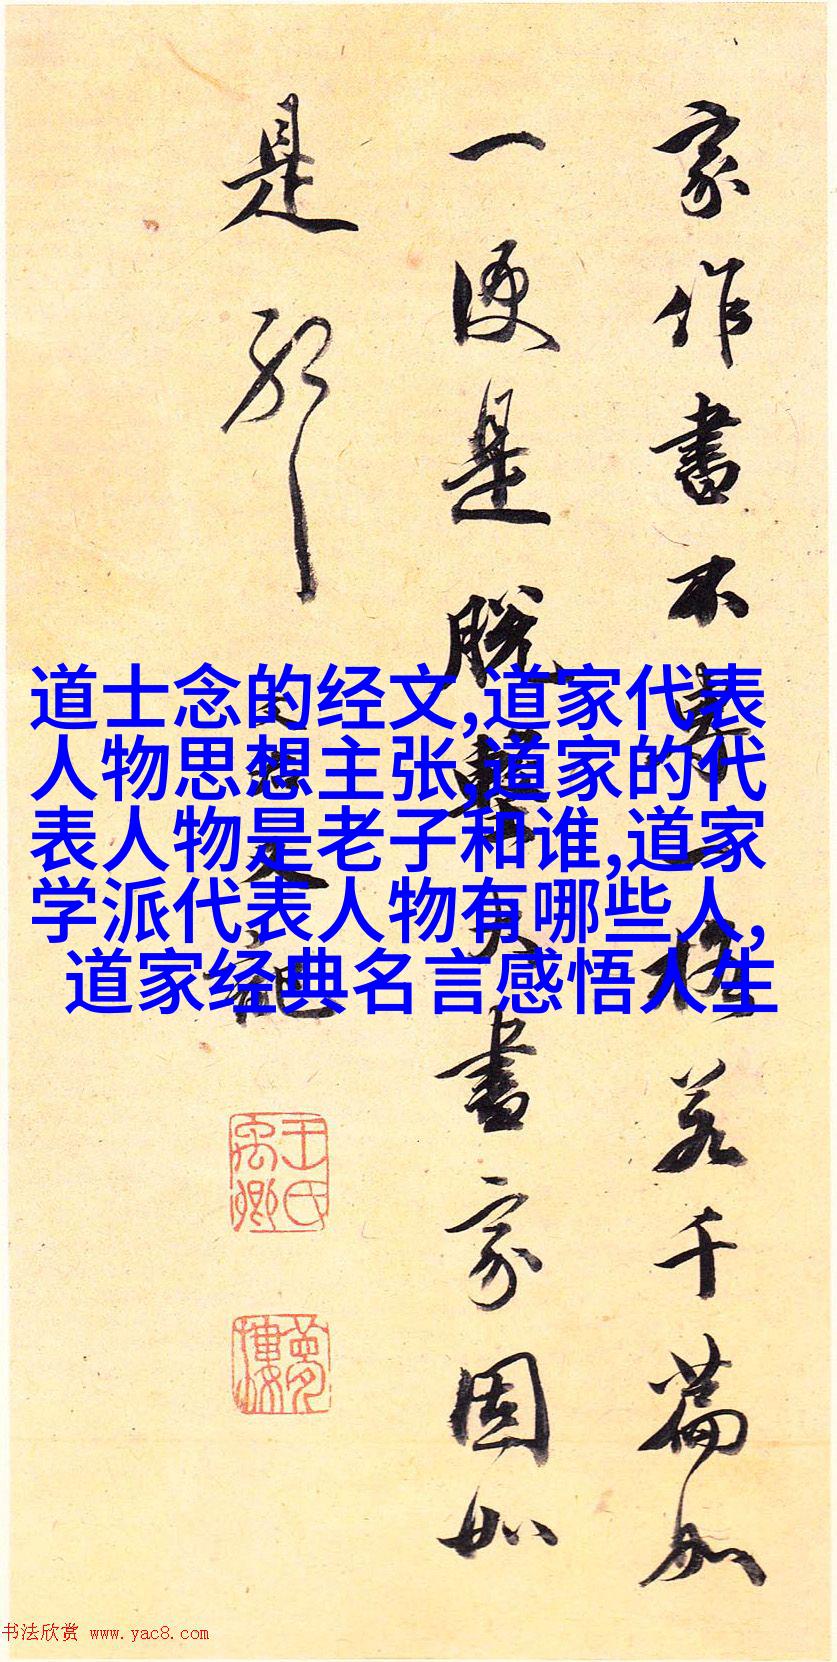 家作書不專一格若千篇如
一便是脫墼夫書家固如
是耶
文治又記
王氏禹卿
夢樓
道士念的经文,道家代表
人物思想主张,道家的代
表人物是老子和谁,道家
学派代表人物有哪些人,
道家经典名言感悟人生
书法欣赏 www.yac8.com